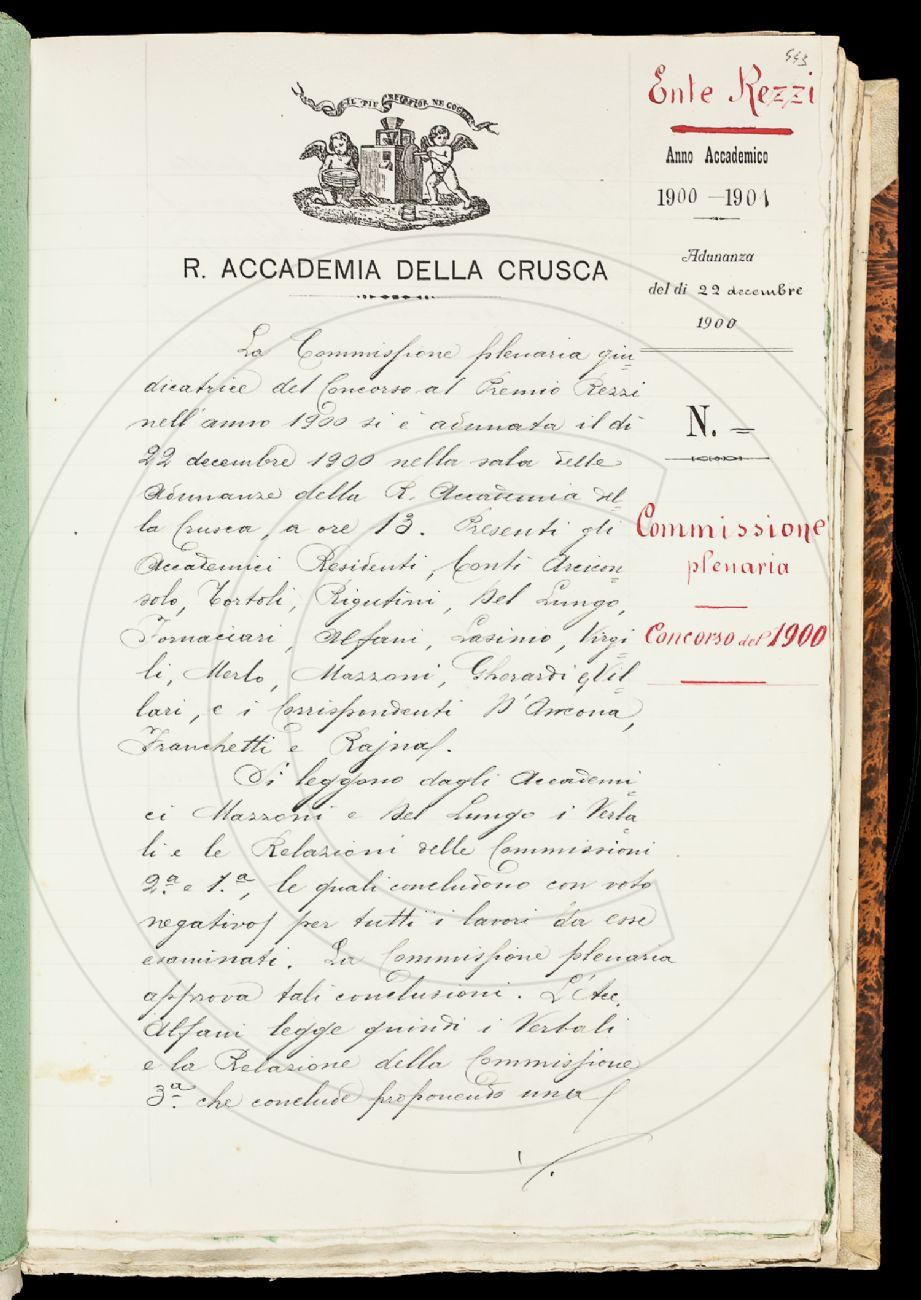 553
Ente Rezzi
Anno Accademico
1900 — 1901
Adunanza
del dì 22 decembre
1900
N. =
Commissione
plenaria
Concorso del 1900
IL PIÙ BEL FIOR NE COGLIE
R. ACCADEMIA DELLA CRUSCA
La Commissione plenaria giu=
dicatrice del Concorso al Premio Rezzi
nell'anno 1900 si è adunata il dì
22 decembre 1900 nella sala delle
Adunanze della R. Accademia del=
la Crusca, a ore 13. Presenti gli
Accademici Residenti, Conti Arcicon=
solo, Tortoli, Rigutini, Del Lungo,
Fornaciari, Alfani, Lasinio, Virgi=
li, Merlo, Mazzoni, Gherardi e Vil=
lari, e i Corrispondenti D'Ancona,
Franchetti e Rajna.
Si leggono dagli Accademi=
ci Mazzoni e Del Lungo i Verba=
li e le Relazioni delle Commissioni
2.ª e 1.ª, le quali concludono con voto
negativo per tutti i lavori da esse
esaminati. La Commissione plenaria
approva tali conclusioni. L'Acc.
Alfani legge quindi i Verbali
e la Relazione della Commissione
3.ª che conclude proponendo una